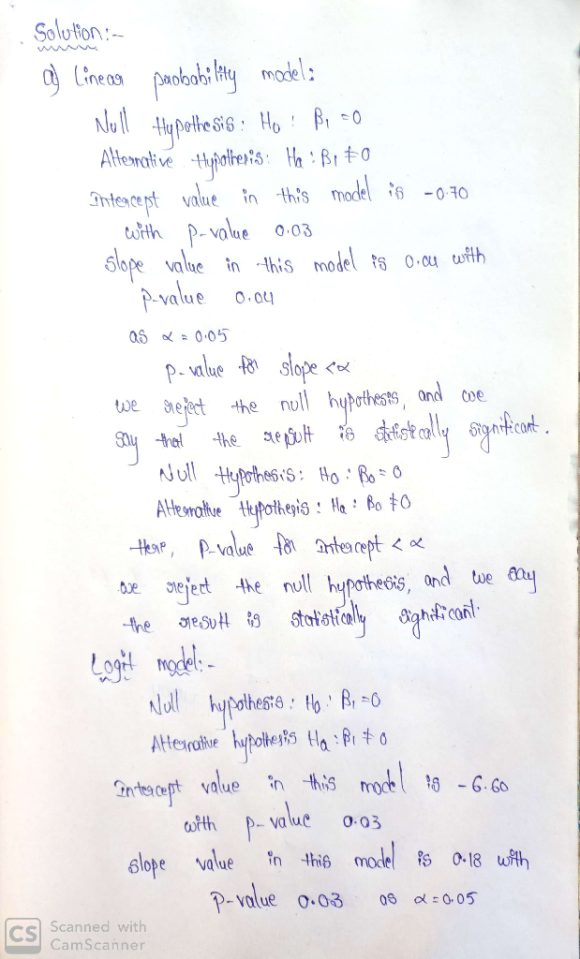 Solution:-
a) Linear probability model:
Null Hypothesis: H0 : β1 = 0
Alternative Hypothesis: Ha : β1 ≠ 0
Intercept value in this model is -0.70
with p-value 0.03
Slope value in this model is 0.04 with
p-value 0.04
as α = 0.05
p-value for slope < α
we reject the null hypothesis, and we
say that the result is statistically significant.
Null Hypothesis: H0 : β0 = 0
Alternative Hypothesis : Ha : β0 ≠ 0
Here, P-value for intercept < α
we reject the null hypothesis, and we say
the result is statistically significant.
Logit model:-
Null hypothesis : H0 : β1 = 0
Alternative hypothesis Ha : β1 ≠ 0
Intercept value in this model is -6.60
with p-value 0.03
slope value in this model is 0.18 with
p-value 0.03 as α = 0.05
CS Scanned with
CamScanner